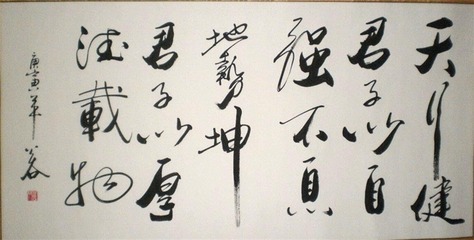 天行健
君子以自
强不息
地勢坤
君子以厚
德載物
庚寅